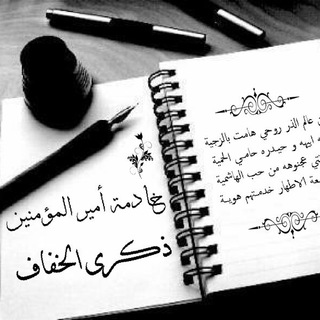 خادمة أمير المؤمنين
ذكرى الخفاف
عالم الذر روحي هامت بالزجية
ابيه و حيدره حامي الحمية
عجنوهه من حب الهاشمية
الاطهار خدمتهم هوية